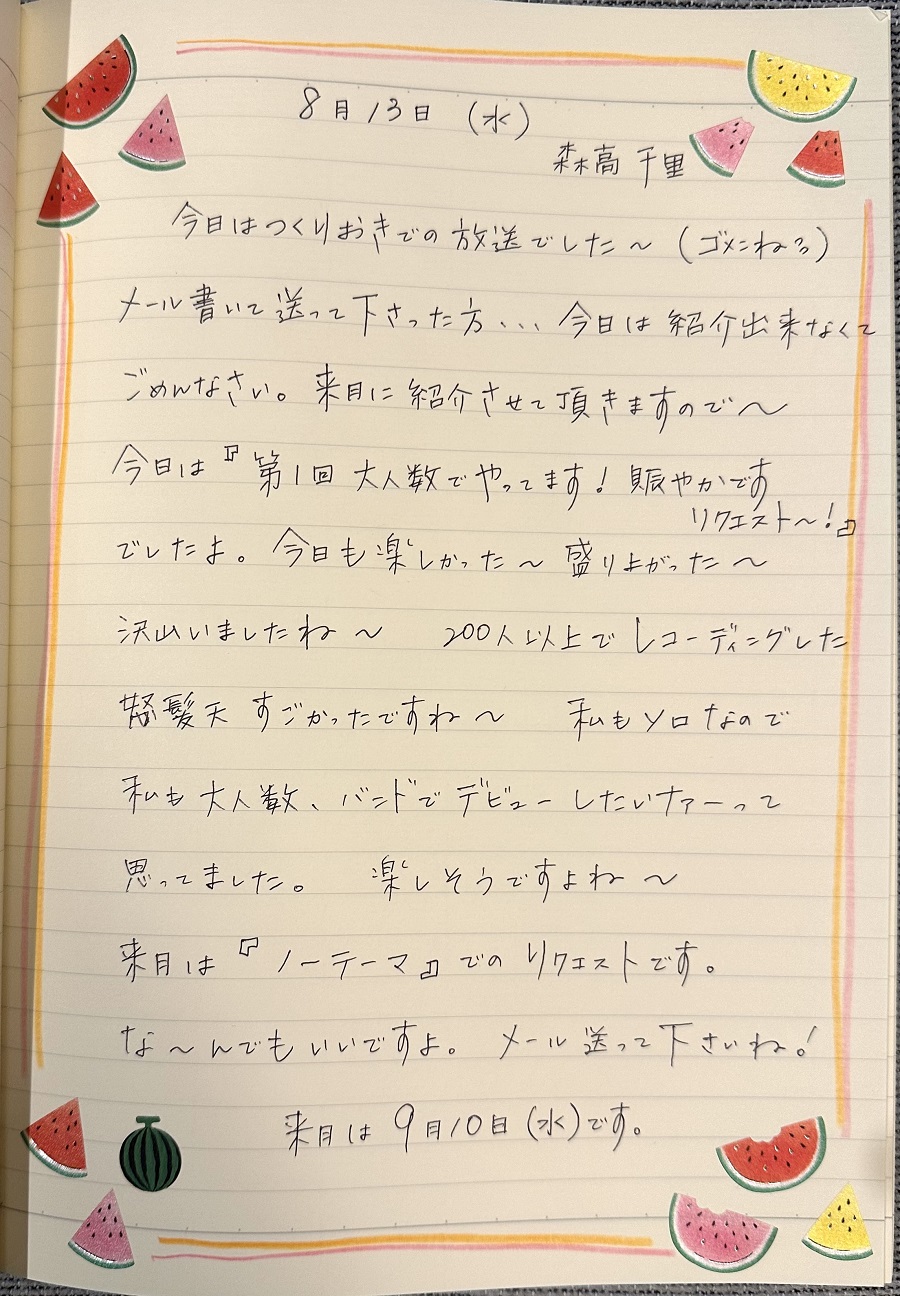 8月13日 (水)
森高千里
今日はつくりおきでの放送でした〜 (ゴメンねっっ)
メール書いて送って下さった方... 今日は紹介出来なくて
ごめんなさい。来月に紹介させて頂きますので〜
今日は『第1回大人数でやってます! 賑やかです
リクエスト〜!』
でしたよ。今日も楽しかった〜盛り上がった〜
沢山いましたね〜 200人以上でレコーディングした
怒髪天すごかったですね〜 私もソロなので
私も大人数、バンドでデビューしたいナァーって
思ってました。 楽しそうですよね〜
来月は『ノーテーマ』でのリクエストです。
な〜んでもいいですよ。メール送って下さいね!
来月は9月10日(水)です。